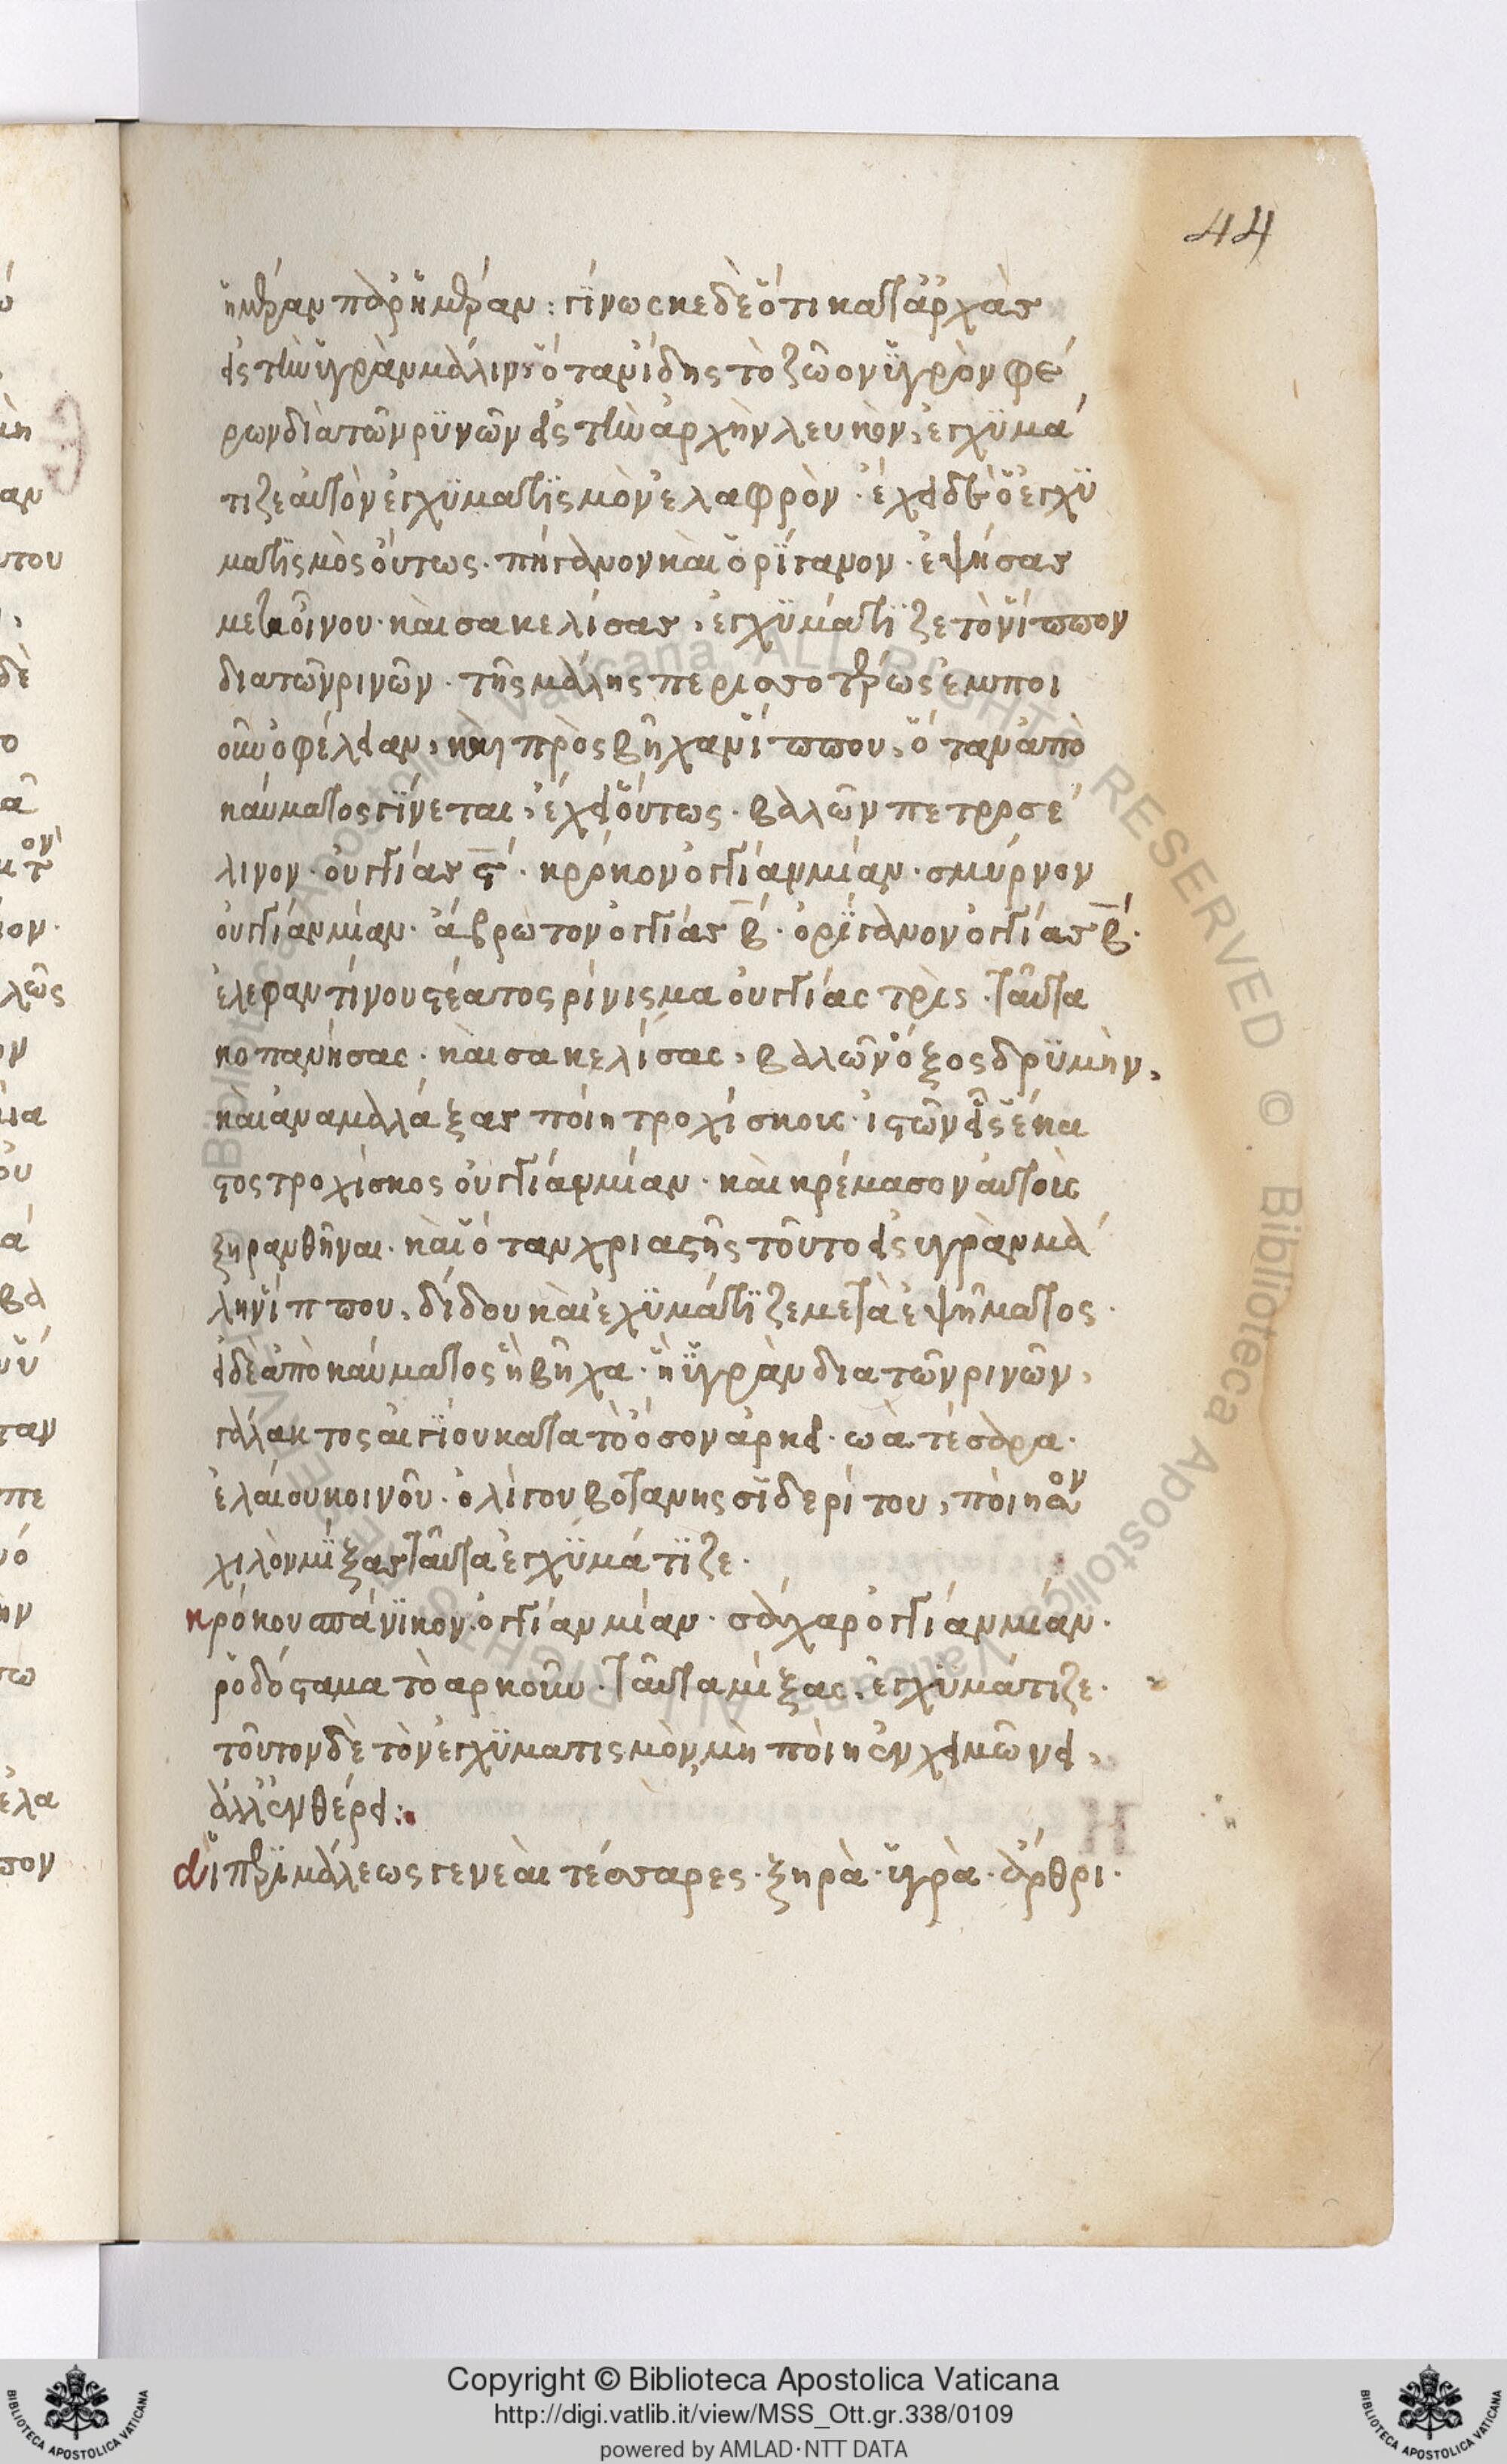 44
ἡμέραν παρ' ἡμέραν : γίνωσκε δὲ ὅτι κατ' ἀρχὰς
εἰς τὴν ὑγρὰν μάλιν· ὅταν ἴδης τὸ ζῶον ὑγρὸν φέ
ρων διὰ τῶν ρϋνῶν εἰς τὴν ἀρχὴν λευκὸν, ἐγχϋμά
τιζε αὐτὸν ἐγχϋματϊσμὸν ἐλαφρὸν · ἔχει δὲ ὁ ἐγχϋ
ματϊσμὸς οὕτως · πήγανον καὶ ὀρίγανον · ἑψήσας
μετὰ οἴνου · καὶ σακελίσας, ἐγχϋμάτϊζε τὸν ἵππον
διὰ τῶν ρινῶν · τῆς μάλης περισσοτέρως ἐμποι
οῦν ὀφέλειαν, καὶ πρὸς βῆχαν ἵππου, ὅταν ἀπὸ
καύματος γίνεται, ἔχει οὕτως · βαλῶν πετροσέ
λινον · οὐγγίας ϛ · κρόκον ὀγγίαν μίαν · σμύρνον
οὐγγίαν μίαν · ἀβρώτον ὀγγίας β · ὀρίγανον ὀγγίας β ·
ἐλεφαντίνου στέατος ρίνισμα οὐγγίας τρὶς · ταῦτα
κοπανήσας · καὶ σακελίσας, βαλῶν ὄξος δρϋμὴν,
καὶ ἀναμαλάξας ποίη τροχίσκους · ἱστῶν εἷς ἕκα
στος τροχίσκος οὐγγίαν μίαν · καὶ κρέμασον αὐτοὺς
ξηρανθῆναι · καὶ ὅταν χριαστῆς τοῦτο εἰς ὑγρὰν μά
λην ἵππου, δίδου καὶ ἐχϋμάτϊζε μετὰ ἑψήματος ·
εἰ δὲ ἀπὸ καύματος ἢ βῆχα · ἢ ὑγρὰν διὰ τῶν ρινῶν,
γάλακτος αἰγίου κατὰ τὸ ὅσον ἀρκεῖ · ωὰ τέσαρα ·
ἐλαίου κοινοῦ · ὀλίγου βοτάνης σϊδερίτου, ποίησον
χιλὸν μίξας ταῦτα ἐγχϋμάτϊζε ·
κρόκου σπάνϊκον · ὀγγίαν μίαν · σάχαρ ὀγγίαν μίαν ·
ροδόσταμα τὸ αρκοῦν · ταῦτα μίξας, ἐγχϋμάτιζε ·
τοῦτον δὲ τὸν ἐγχϋματισμὸν, μὴ ποίη ἐν χειμῶνει,
ἀλλ' ἐν θέρει :
αἱ περὶ μάλεως γενεαὶ τέσσαρες · ξηρὰ · ὑγρὰ · ἀρθρι ·
Copyright © Biblioteca Apostolica Vaticana
http://digi.vatlib.it/view/MSS_Ott.gr.338/0109
powered by AMLAD·NTT DATA